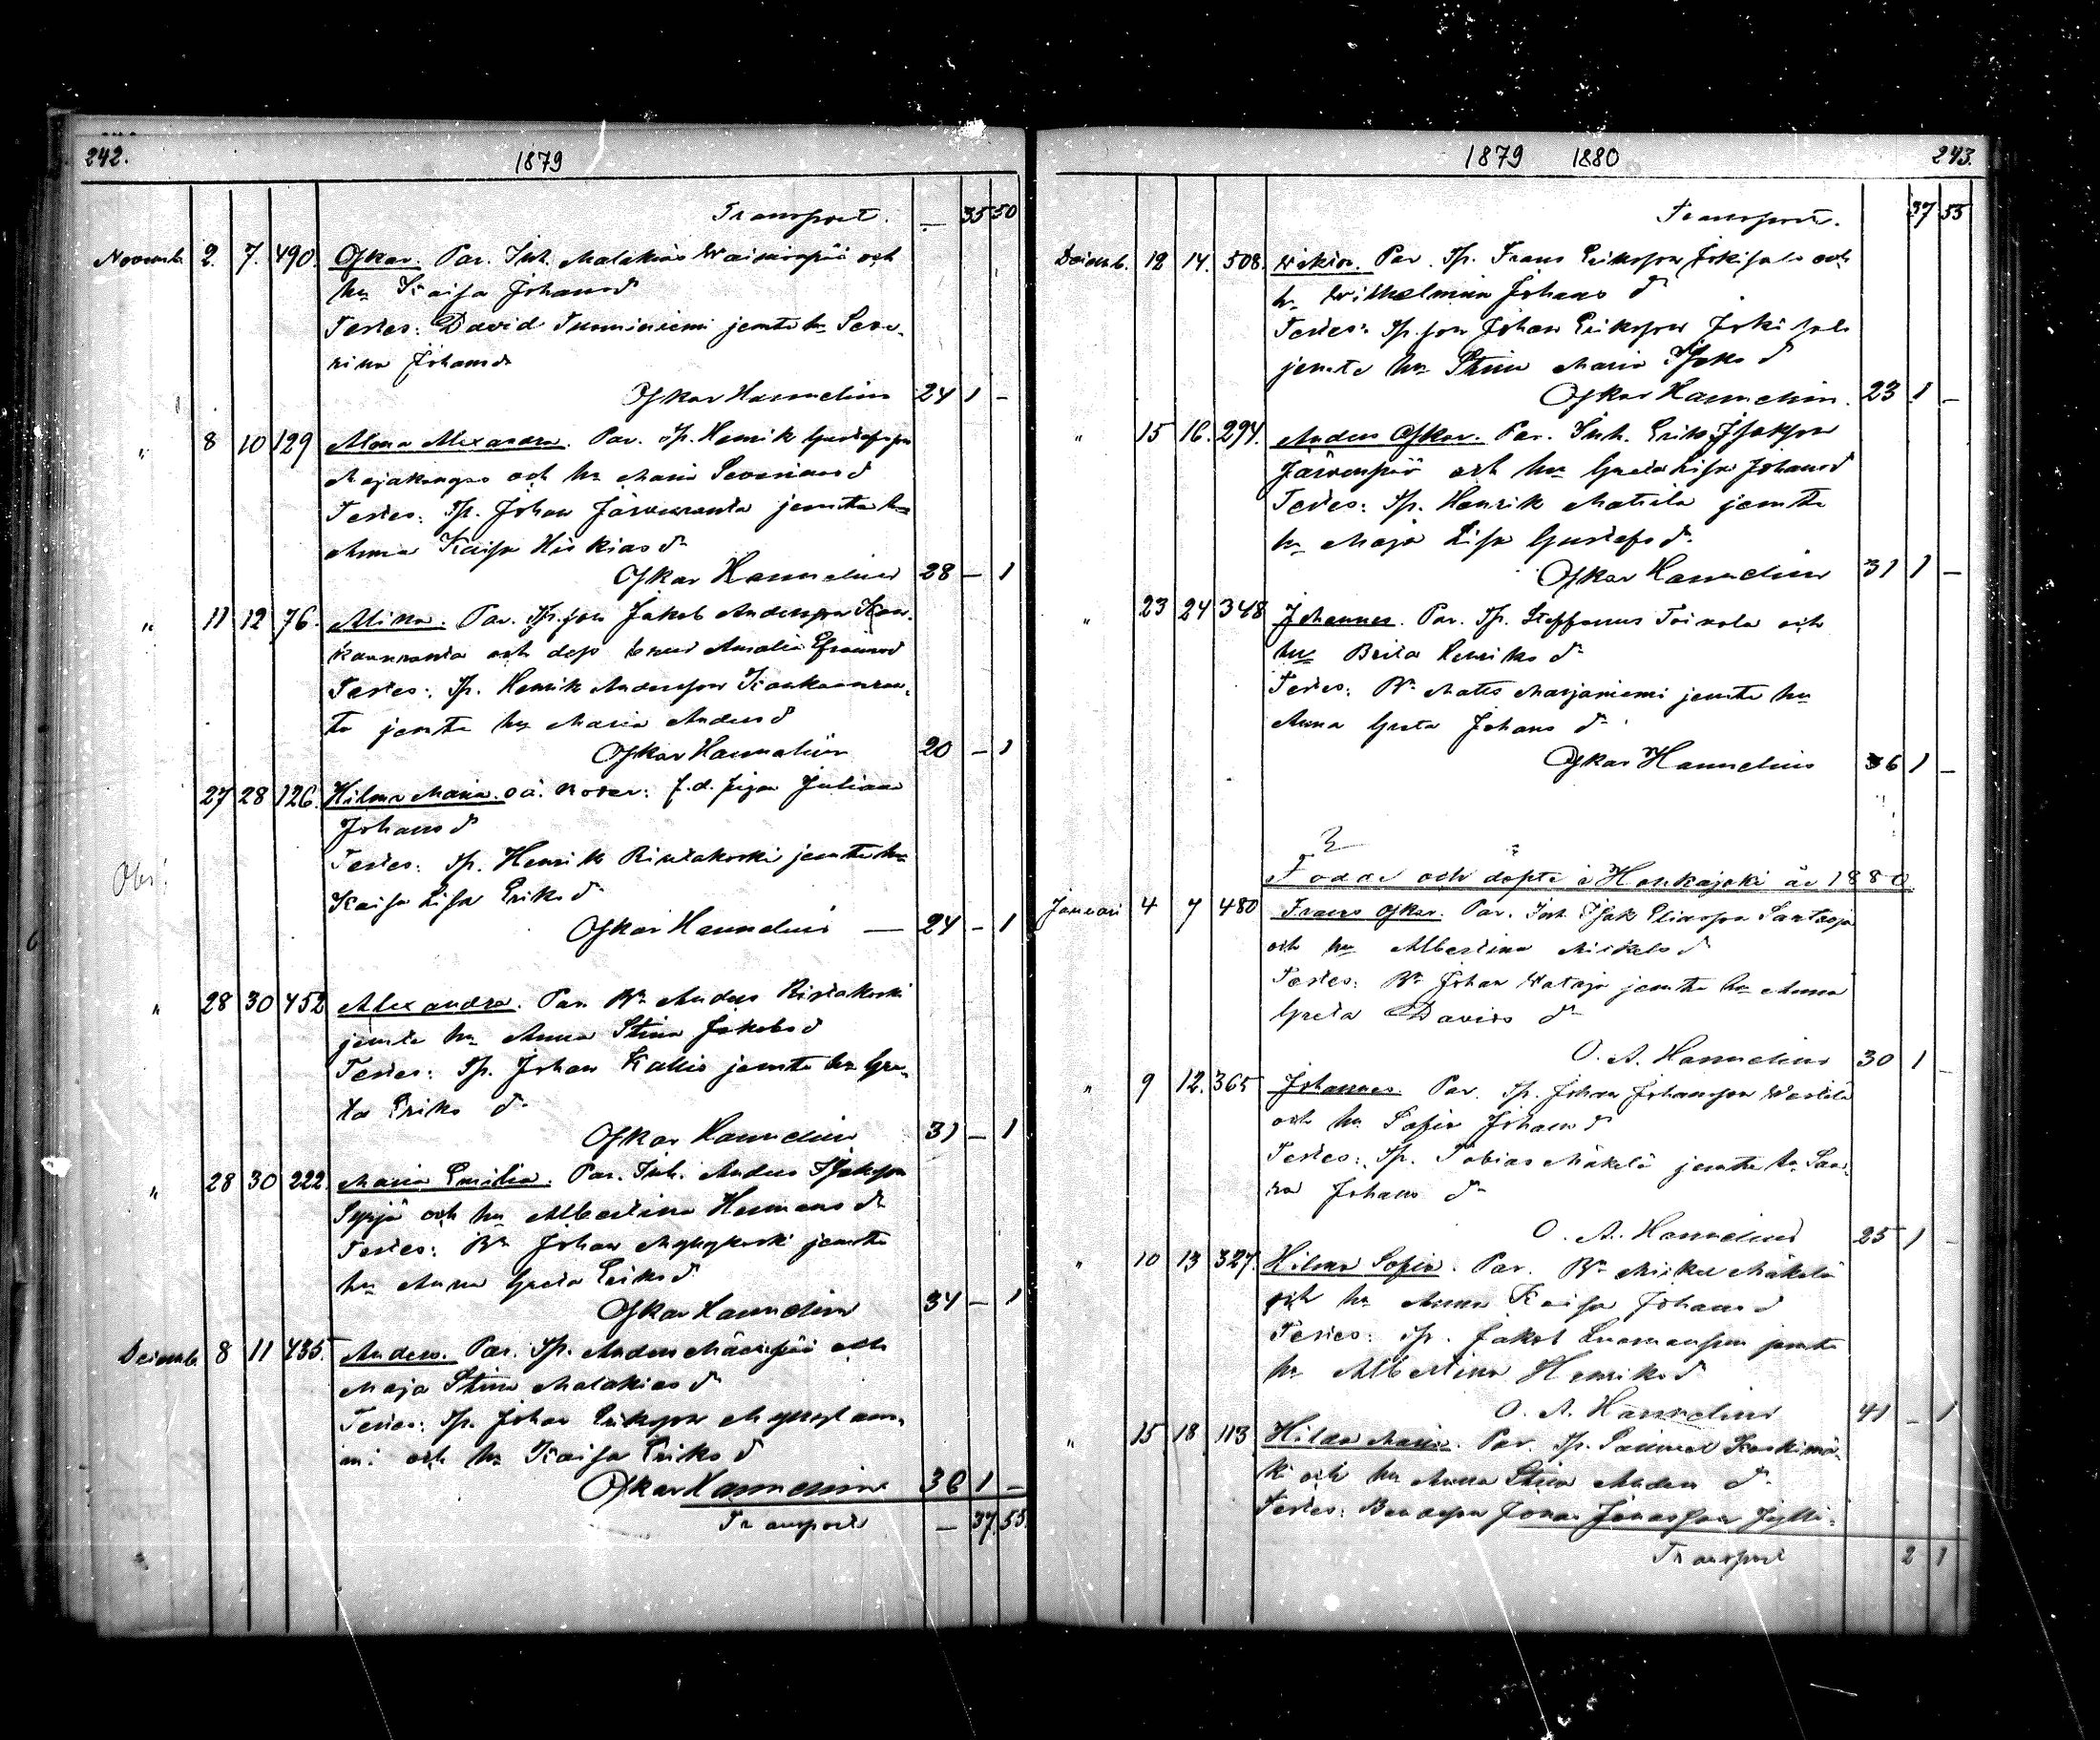 242.
1879
Transport. — 35 50
Novemb. 2. 7. 490. Oskar. Par. Inh. Malakias och
hu Kaisa Johansdr
Testes: David Tuominiemi jemte hu Seve-
rina Johansdr
Oskar Hannelius 24 1 –
" 8 10 129 Alma Alexandra. Par. Tp. Henrik Gustafsson
Majakangas och hu Maria
Testes: Tp. Johan Järvenranta jemte hu
Anna Kaisa Hiskiasdr
Oskar Hannelius 28 – 1
" 11 12 76. Alina. Par. Tp. son Jakob Andersson Kan-
kaanranta och dess brud Amalia Efraimsdr
Testes: Tp. Henrik Andersson Kankaanran-
ta jemte hu Maria Andersdr
Oskar Hannelius 20 – 1
27 28 126. Hilma Maria. oä. Moder: f.d. pigan Juliana
Johansdr
Testes: Tp. Henrik Ristakoski jemte hu
Kaisa Lisa Eriksdr
Obs!
Oskar Hannelius — 24 – 1
" 28 30 452 Alexandra. Par. Bn Anders Ristakoski
jemte hu Anna Stina Jakobsdr
Testes: Tp. Johan Kallio jemte hu Gre-
ta Eriksdr
Oskar Hannelius 31 – 1
" 28 30 222. Maria Emilia. Par. Inh. Anders Isaksson
Syrjä och hu Albertina Hermansdr
Testes: Bn Johan Myllykoski jemte
hu Anna Greta Eriksdr
Oskar Hannelius 34 – 1
Decemb. 8 11 435. Anders. Par. Tp. Anders Mäenpää och
Maja Stina Malakiasdr
Testes: Tp. Johan Eriksson
och hu Kaisa Eriksdr
Oskar Hannelius 36 1 –
Transport — 37 55.
1879 1880
243.
Transport. 37 55
Decemb. 12 14. 508. Viktor. Par. Tp. Frans Eriksson Jokisalo och
hu Wilhelmina Johansdr
Testes: Tp. son Johan Eriksson Jokisalo
jemte hu Stina Maria Isaksdr
Oskar Hannelius. 23 1 –
" 15 16. 294. Anders Oskar. Par. Inh. Erik Isaksson
Järvenpää och hu Greta Lisa Johansdr
Testes: Tp. Henrik Mattila jemte
hu Maja Lisa Gustafsdr
Oskar Hannelius 31 1 –
" 23 24 348 Johannes. Par. Tp. Steffanus Toivola och
hu Brita Henriksdr
Testes: Bn Matts Marjaniemi jemte hu
Anna Greta Johansdr
Oskar Hannelius 36 1 –
Födde och döpte i Honkajoki år 1880.
Januari 4 7 480 Frans Oskar. Par. Inh. Isak Eliasson Santaoja
och hu Albertina Mickelsdr
Testes: Bn Johan Wataja jemte hu Anna
Greta Davidsdr
O. A. Hannelius 30 1 –
" 9 12. 365 Johannes. Par. Tp. Johan Johansson
och hu Sofia Johansdr
Testes: Tp. Tobias Mäkelä jemte hu Saa-
ra Johansdr
O. A. Hannelius 25 1 –
" 10 13 327. Hilma Sofia. Par. Bn Mickel Mäkelä
och hu Anna Kaisa Johansdr
Testes: Tp. Jakob Luomanpää jemte
hu Albertina Henriksdr
O. A. Hannelius 41 – 1
" 15 18. 113 Hilda Maria. Par. Tp. Samuel Koskimä-
ki och hu Anna Stina Andersdr
Testes: Jonas Jonasson Jylli-
Transport 2 1